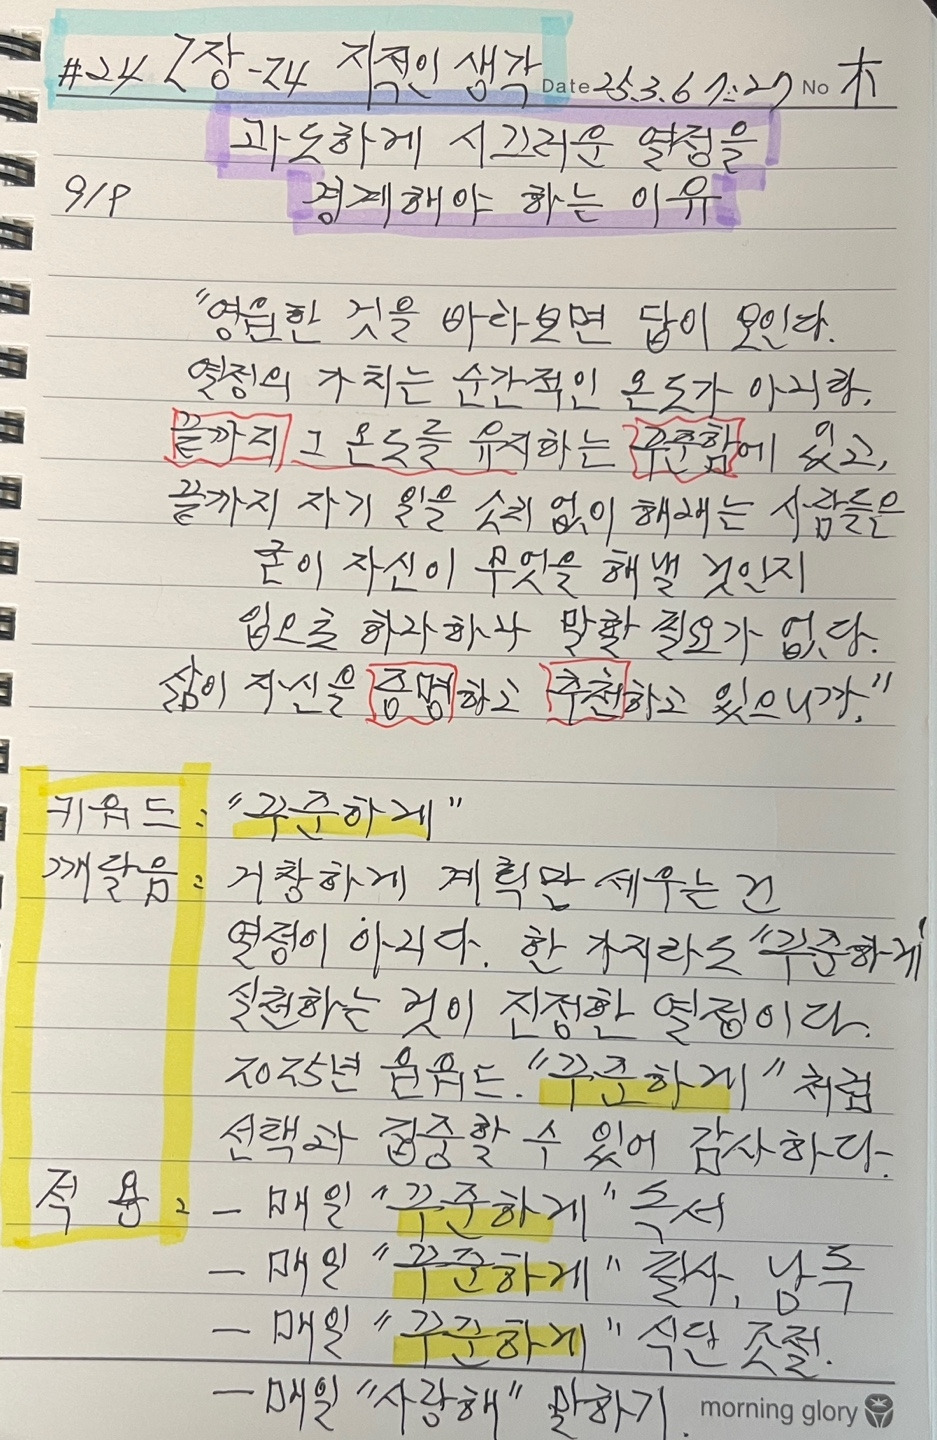 #24 2장-24 지적인 생각 Date 25.3.6 7:27 No 木
과도하게 시끄러운 열정을
91P 경계해야 하는 이유
"영원한 것을 바라보면 답이 보인다.
열정의 가치는 순간적인 온도가 아니라,
끝까지 그 온도를 유지하는 꾸준함에 있고,
끝까지 자기 일을 소리 없이 해내는 사람들은
굳이 자신이 무엇을 해낼 것인지
입으로 하나하나 말할 필요가 없다.
삶이 자신을 증명하고 추천하고 있으니까."
키워드: "꾸준하게"
깨달음: 거창하게 계획만 세우는 건
열정이 아니다. 한 가지라도 "꾸준하게"
실천하는 것이 진정한 열정이다.
2025년 원워드. "꾸준하게"처럼
선택과 집중할 수 있어 감사하다.
적용: - 매일 "꾸준하게" 독서
- 매일 "꾸준하게" 필사, 낭독
- 매일 "꾸준하게" 식단 조절.
- 매일 "사랑해" 말하기.
morning glory